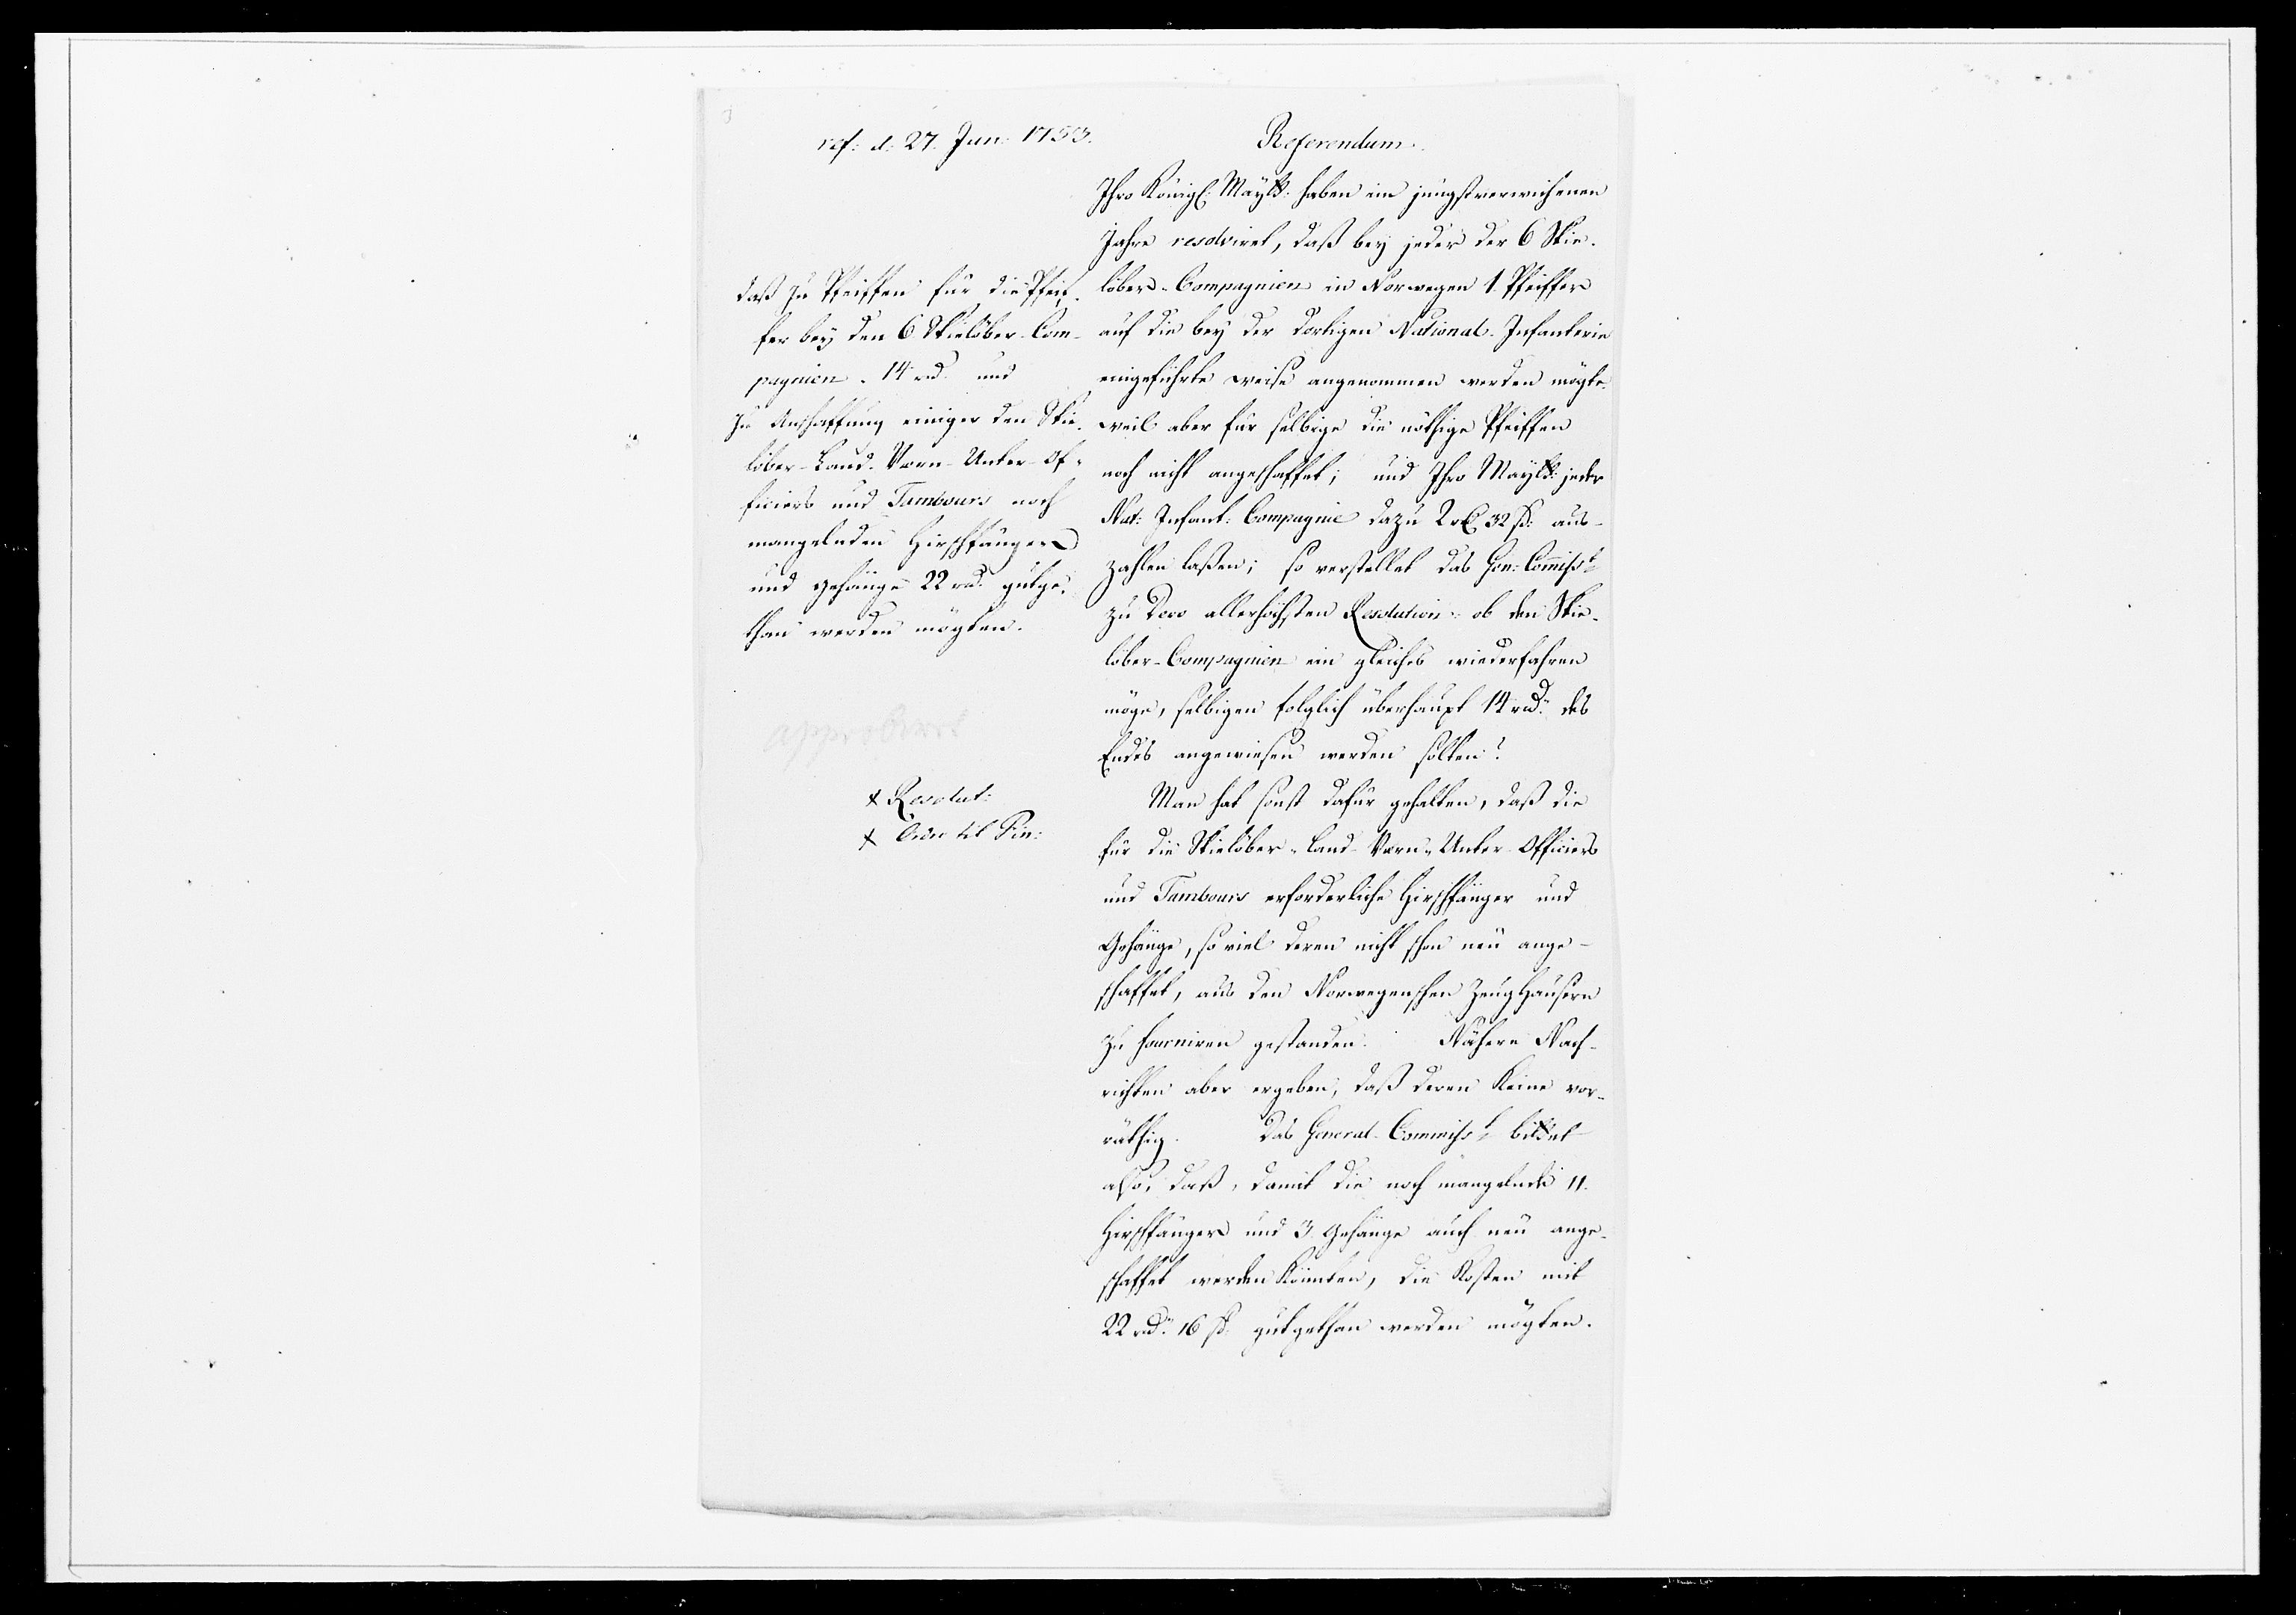 ref: d: 27. Jun: 1753.
Referendum.
daß zu Pfeiffen für die Pfeif-
fer bey den 6 Skielöber-Com-
pagnien. 14 rd. und
zu Anschaffung einiger den Skie-
löber-Land-Værn-Unter-Of-
ficiers und Tambours noch
mangelnden Hirschfänger
und Gehänge 22 rd. gutge-
than werden mögten.
approbirt
x Resolut:
x Ordre til Fin:
Ihro Königl: Maytt: haben im jüngstverwichenen
Jahre resolviret, daß bey jeder der 6 Skie-
löber-Compagnien in Norwegen 1. Pfeiffer
auf die bey der dortigen National-Infanterie
eingeführte weise angenommen werden mögte.
weil aber für selbige die nöthige Pfeiffen
noch nicht angeschaffet; und Ihro Maytt: jeder
Nat: Infant: Compagnie dazu 2 r 32 ß: aus-
zahlen laßen; so verstellet das Gen: Commiss:
zu Dero allerhöchsten Resolution: ob den Skie-
löber-Compagnien ein gleiches wiederfahren
möge, selbigen folglich überhaupt 14 rd. des
Endes angewiesen werden sollen?
Man hat sonst dafür gehalten, daß die
für die Skielöber-Land-Værn-Unter-Officiers
und Tambours erforderliche Hirschfänger und
Gehänge, so viel deren nicht schon neu ange-
schaffet, aus den Norwegenschen Zeughäusern
zu fourniren gestanden. Nähere Nach-
richten aber ergeben, daß deren keine vor-
räthig. Das General-Commiss: bittet
also, daß, damit die noch mangelnde 11.
Hirschfänger und 3 Gehänge auch neu ange-
schaffet werden könnten, die Kosten mit
22 rd. 16 ß. gutgethan werden mögten.